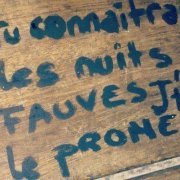 Tu connaîtra
des nuits
FAUVES J't
le PROME